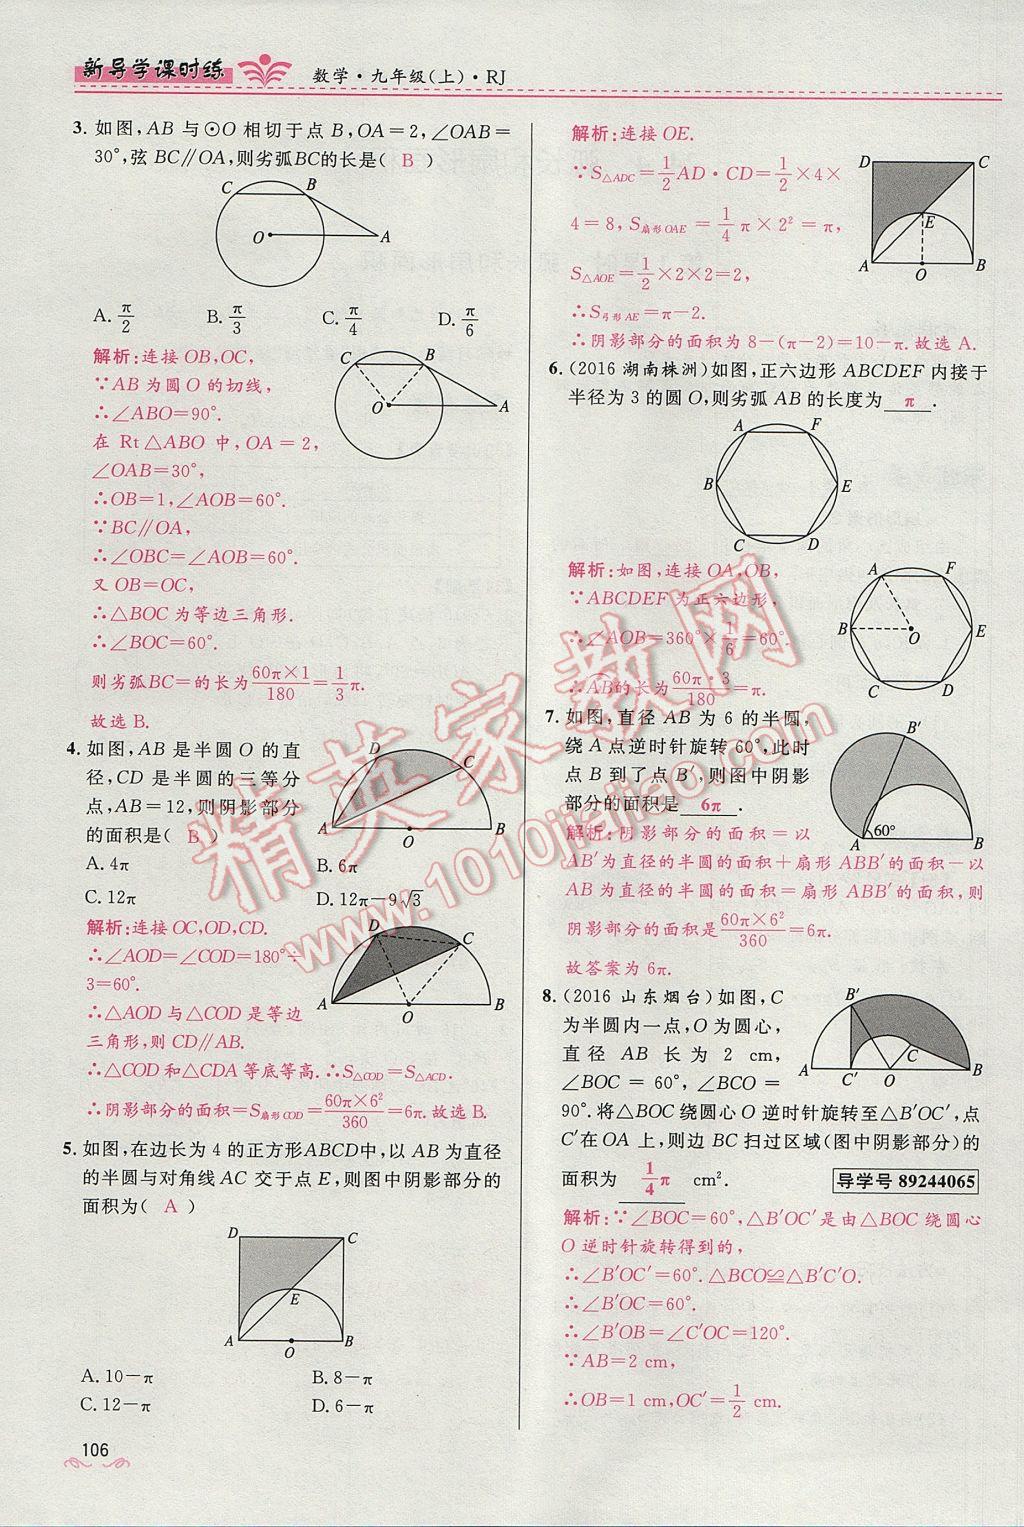 新导学课时练 数学·九年级(上)·RJ
3. 如图,AB 与⊙O 相切于点 B,OA=2,∠OAB=
30°,弦 BC∥OA,则劣弧BC的长是( B )
C B O A
A. π/2 B. π/3 C. π/4 D. π/6
解析:连接 OB,OC,
∵AB 为圆 O 的切线,
∴∠ABO=90°.
在 Rt△ABO 中,OA=2,
∠OAB=30°,
∴OB=1,∠AOB=60°.
∵BC∥OA,
∴∠OBC=∠AOB=60°.
又 OB=OC,
∴△BOC 为等边三角形.
∴∠BOC=60°.
则劣弧BC=的长为60π×1/180=1/3π.
故选 B.
C B O A
4. 如图,AB 是半圆 O 的直
径,CD 是半圆的三等分
点,AB=12,则阴影部分
的面积是( B )
D C A O B
A. 4π B. 6π
C. 12π D. 12π-9√3
解析:连接 OC,OD,CD.
∴∠AOD=∠COD=180°÷
3=60°.
∴△AOD 与△COD 是等边
三角形,则 CD∥AB.
∴△COD 和△CDA 等底等高.∴S△COD=S△ACD.
∴阴影部分的面积=S扇形COD=60π×6²/360=6π.故选 B.
D C A O B
5. 如图,在边长为 4 的正方形ABCD中,以 AB 为直径
的半圆与对角线 AC 交于点 E,则图中阴影部分的
面积为( A )
D C E A O B
A. 10-π B. 8-π
C. 12-π D. 6-π
106
解析:连接 OE.
∵S△ADC=1/2AD·CD=1/2×4×
4=8,S扇形OAE=1/4π×2²=π,
S△AOE=1/2×2×2=2,
∴S弓形AE=π-2.
∴阴影部分的面积为 8-(π-2)=10-π.故选 A.
D C E A O B
6. (2016 湖南株洲)如图,正六边形 ABCDEF 内接于
半径为 3 的圆 O,则劣弧 AB 的长度为 π .
A F B E C D
解析:如图,连接 OA,OB,
∵ABCDEF 为正六边形,
∴∠AOB=360°×1/6=60°.
∴AB的长为60π·3/180=π.
A F B O E C D
7. 如图,直径 AB 为 6 的半圆,
绕 A 点逆时针旋转 60°,此时
点 B 到了点 B′,则图中阴影
部分的面积是 6π .
B′ 60° A B
解析:阴影部分的面积=以
AB′为直径的半圆的面积+扇形 ABB′的面积-以
AB 为直径的半圆的面积=扇形 ABB′的面积,则
阴影部分的面积是60π×6²/360=6π.
故答案为 6π.
8. (2016 山东烟台)如图,C
为半圆内一点,O 为圆心,
直径 AB 长为 2 cm,
∠BOC=60°,∠BCO=
90°.将△BOC 绕圆心 O 逆时针旋转至△B′OC′,点
C′在 OA 上,则边 BC 扫过区域(图中阴影部分)的
面积为 1/4π cm².
导学号 89244065
B′ C A C′ O B
解析:∵∠BOC=60°,△B′OC′是由△BOC 绕圆心
O 逆时针旋转得到的,
∴∠B′OC′=60°.△BCO≌△B′C′O.
∴∠B′OC=60°.
∴∠B′OB=∠C′OC=120°.
∵AB=2 cm,
∴OB=1 cm,OC′=1/2 cm.
精英家教网
www.1010jiajiao.com